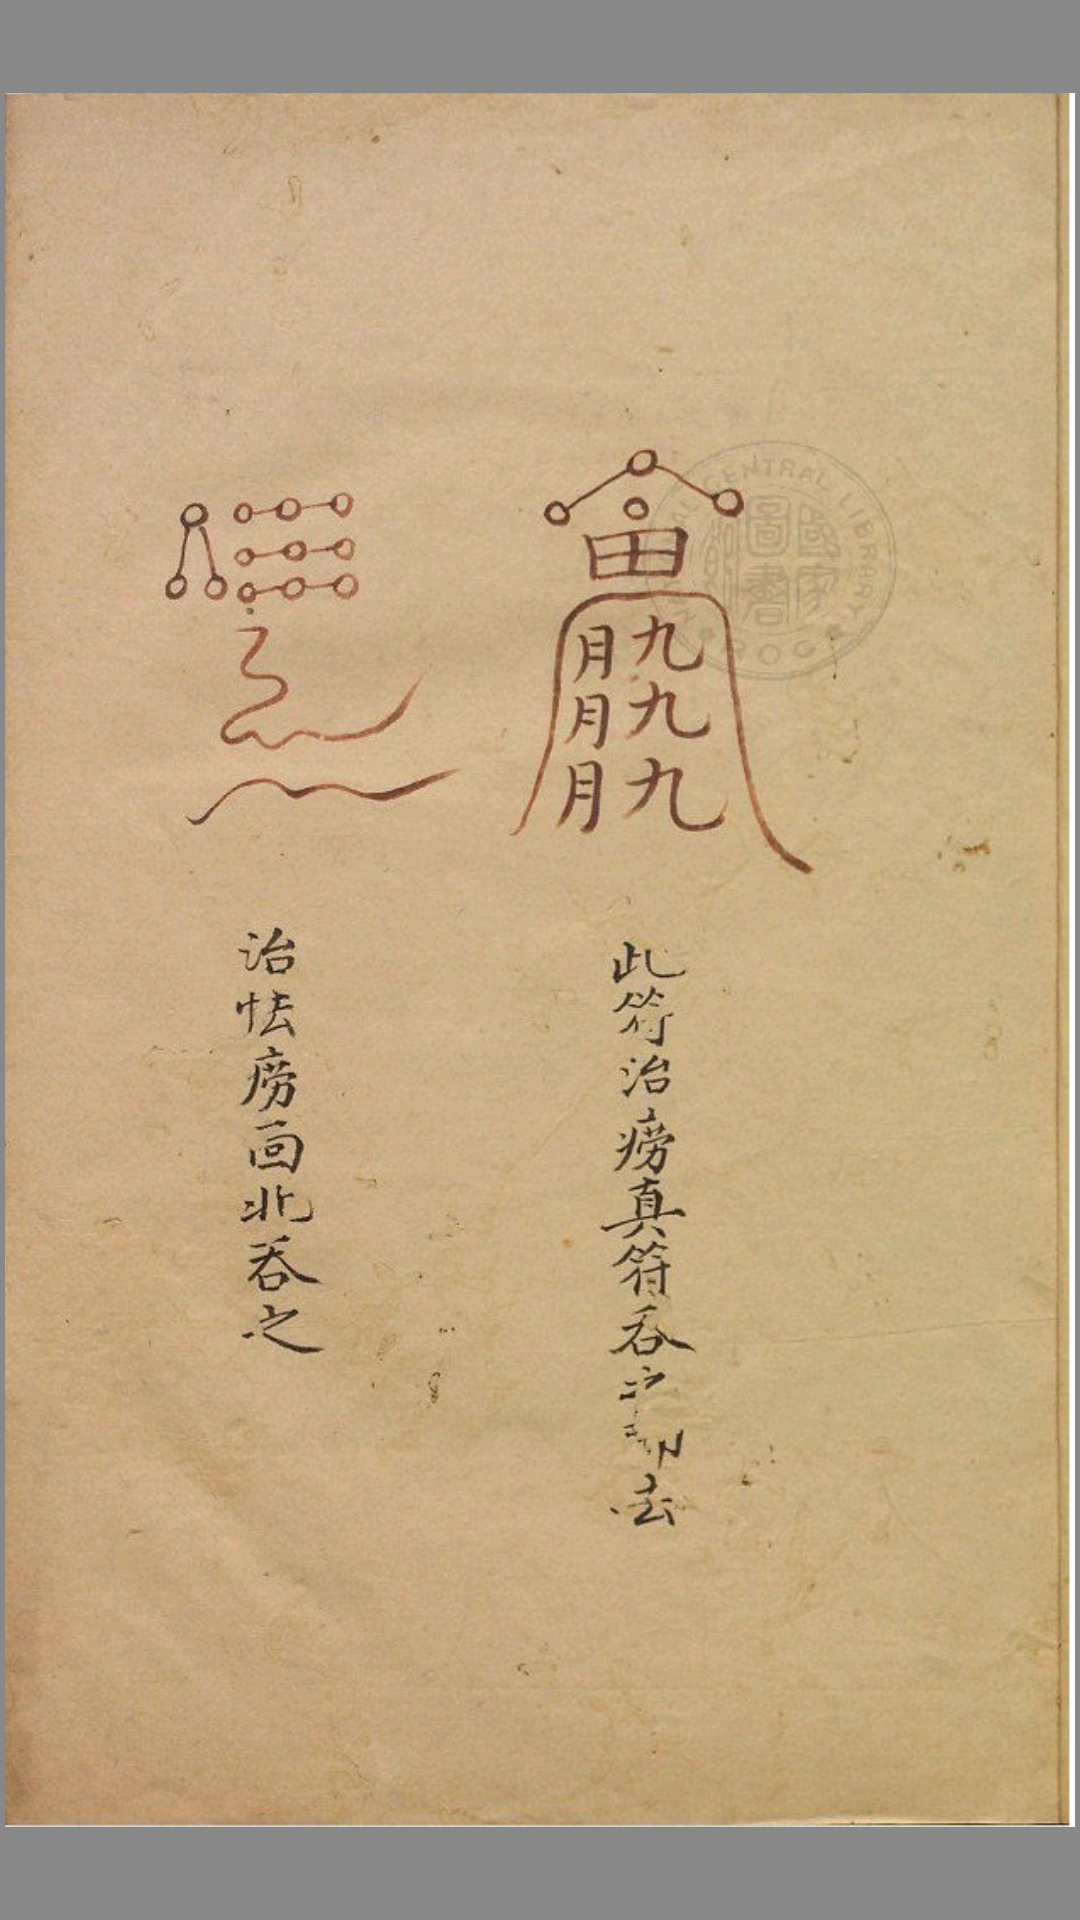 CENTRAL LIBRARY
國家
圖書
田
九九九
月月月
此符治痨真符吞之
去
治怯痨面北吞之